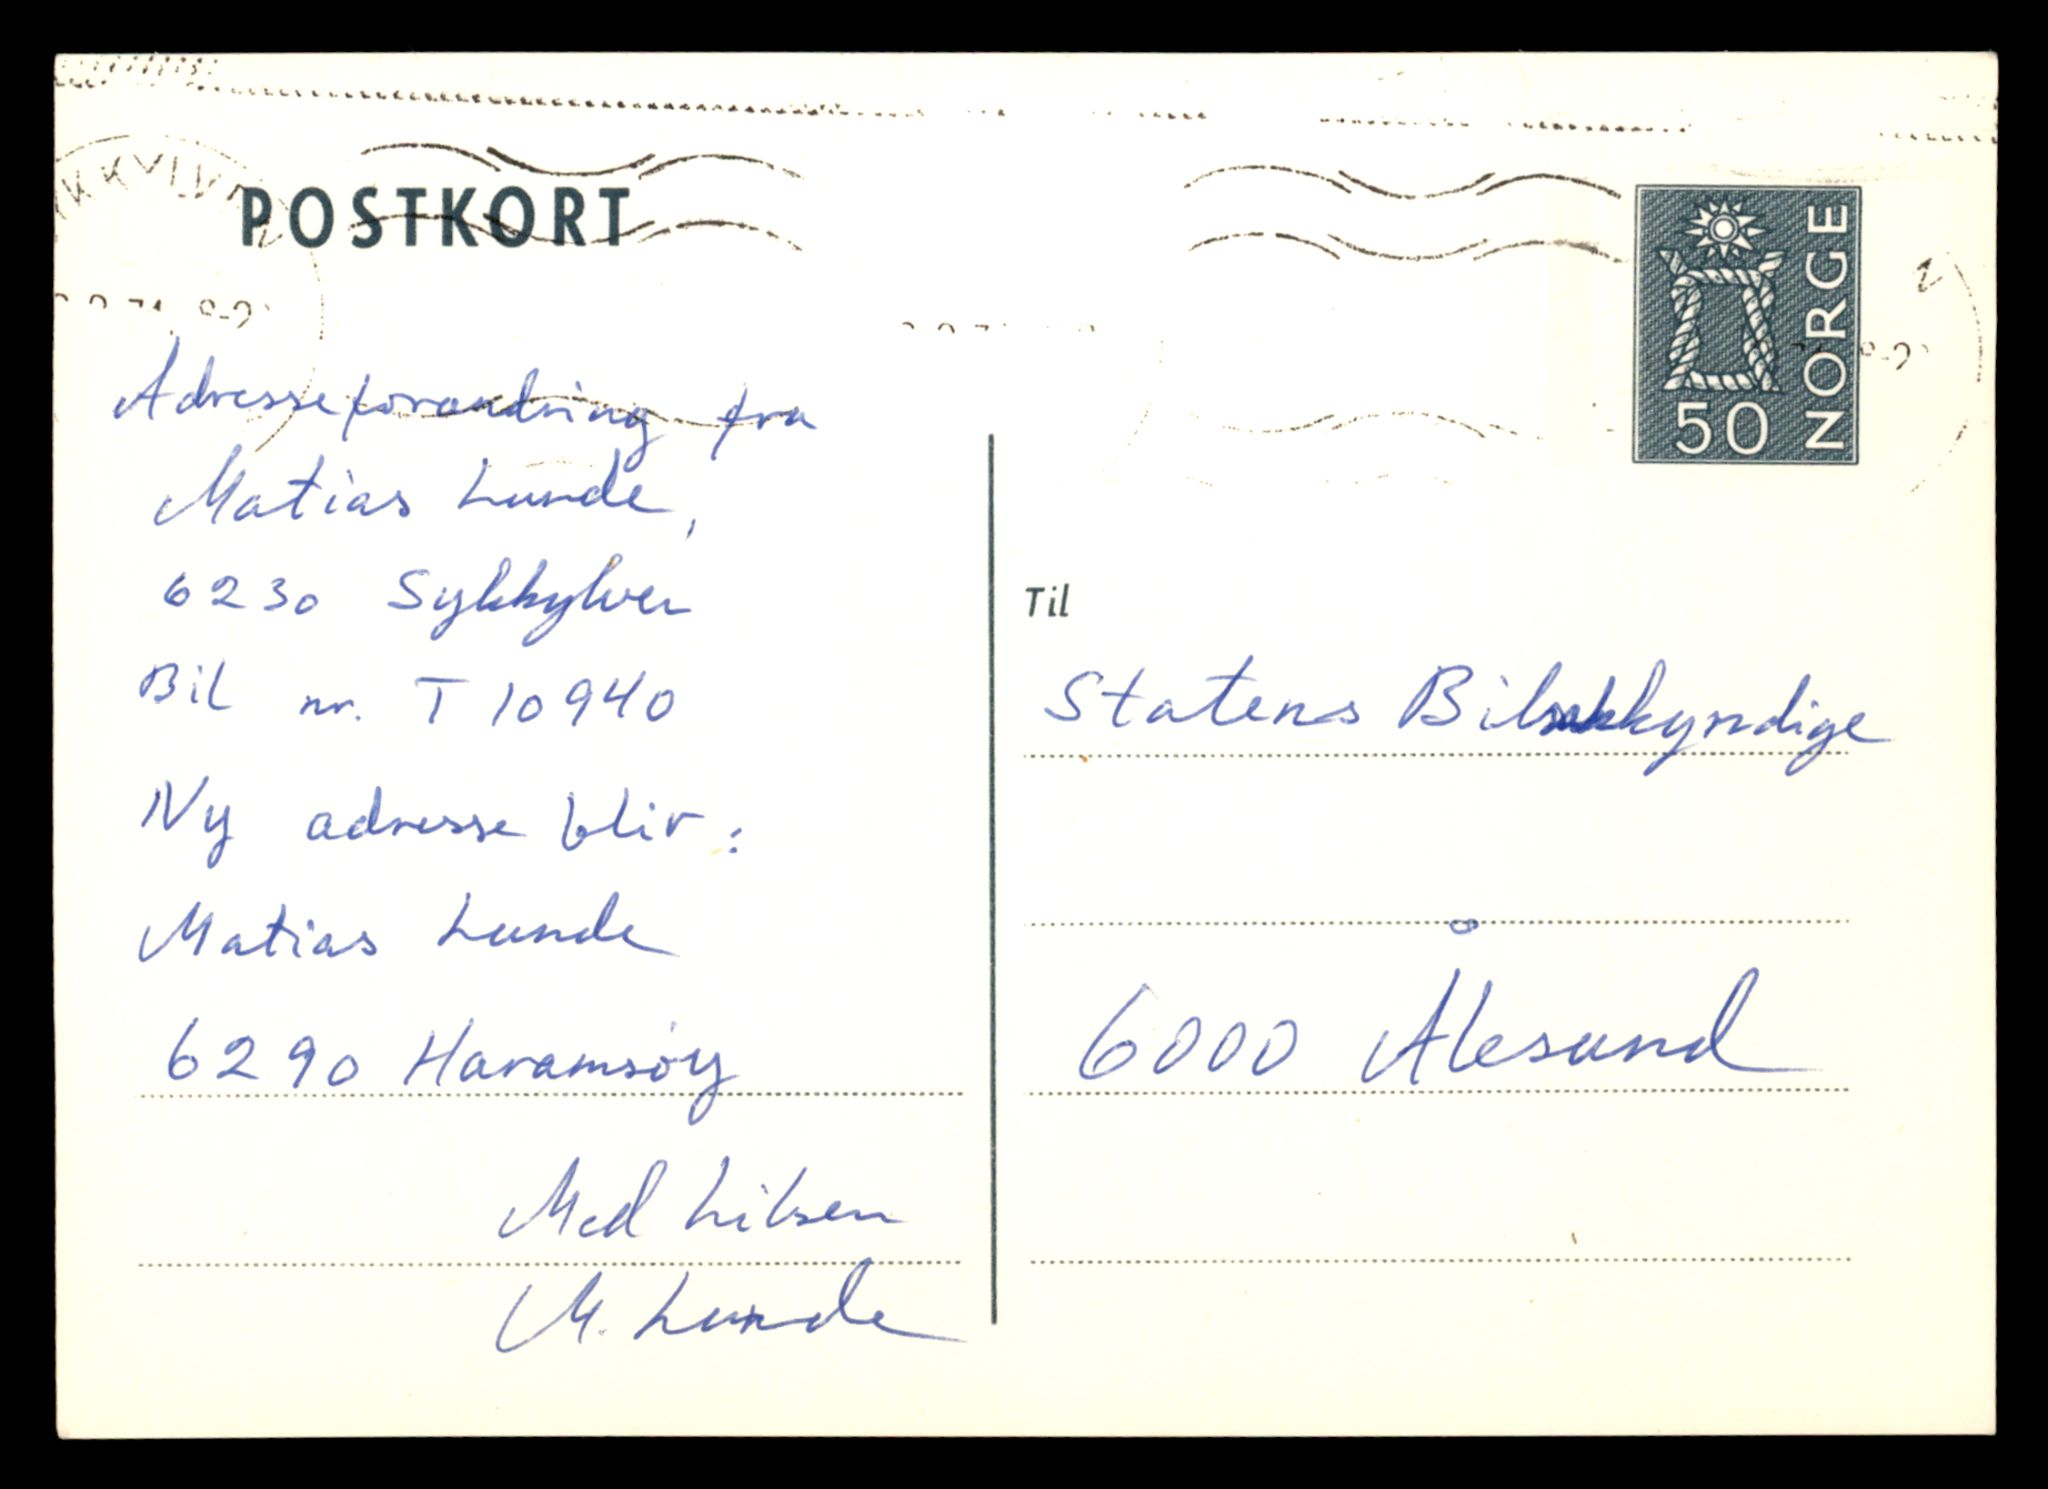 POSTKORT
NORGE
50
Adresseforandring fra
Matias Lunde,
6230 Sykkylven
Bil nr. T 10940
Ny adresse blir:
Matias Lunde
6290 Haramsøy
Med hilsen
M. Lunde
Til
Statens Bilsakkyndige
6000 Ålesund